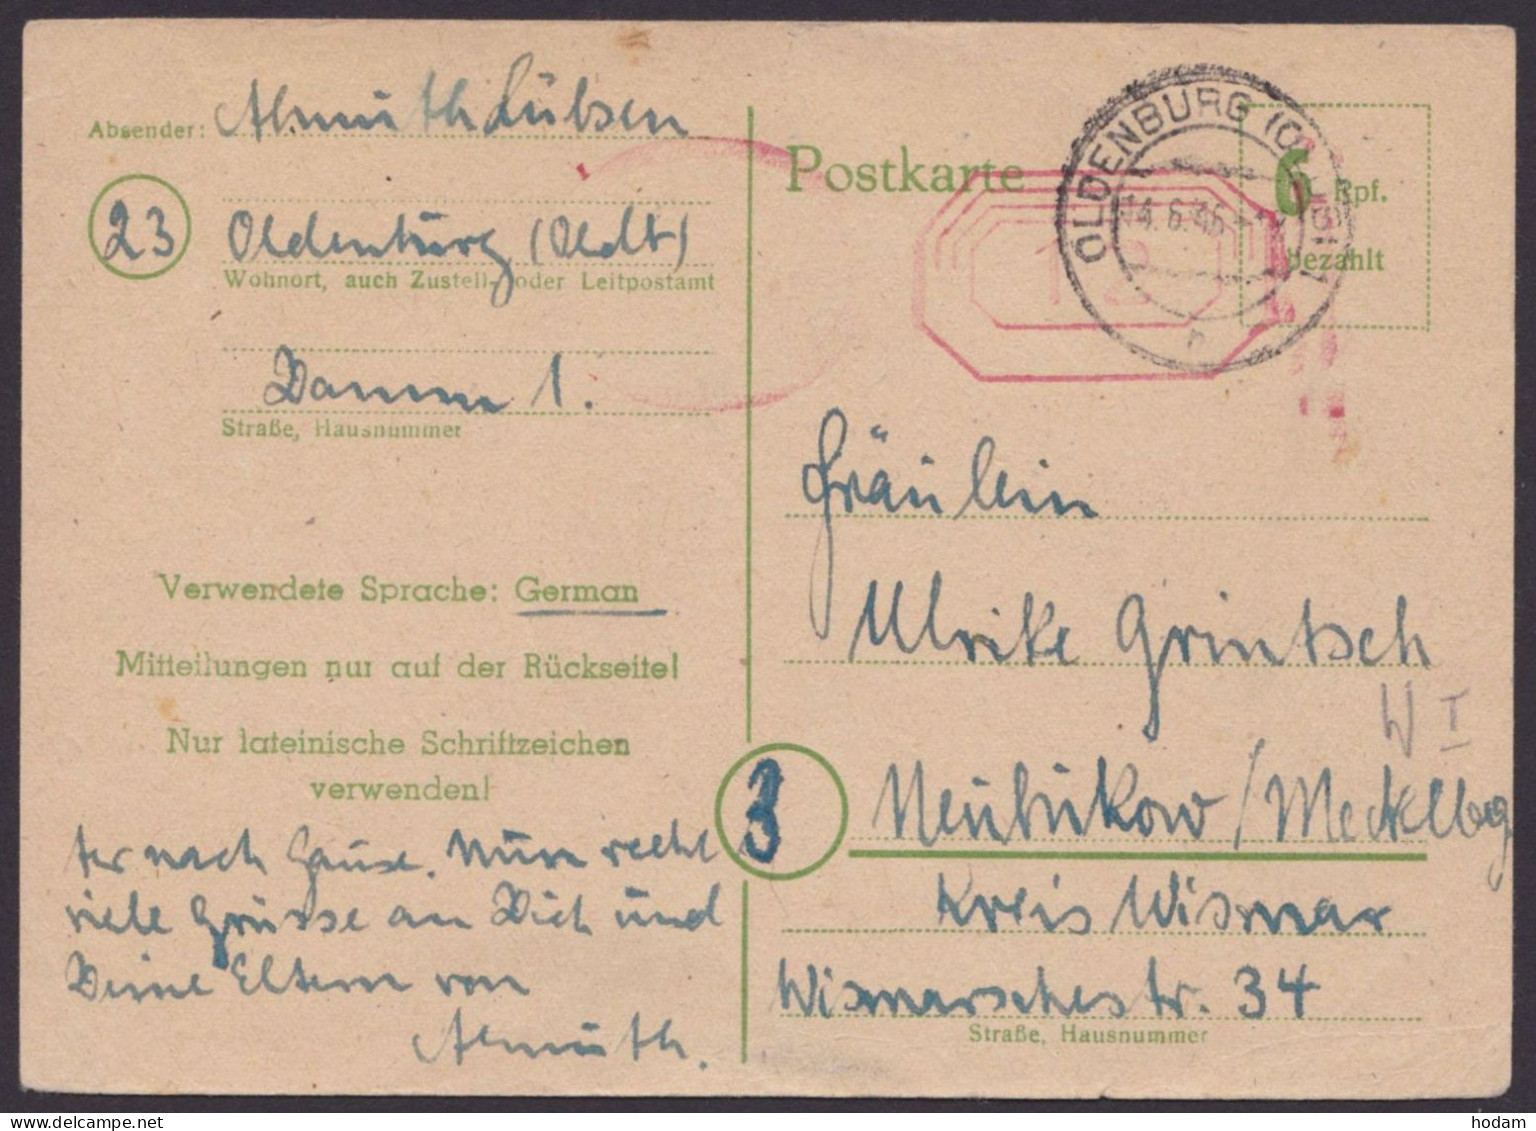 Absender: Almuth Lübsen
23 Oldenburg (Oldb)
Wohnort, auch Zustell- oder Leitpostamt
Damm 1.
Straße, Hausnummer
Verwendete Sprache: German
Mitteilungen nur auf der Rückseite!
Nur lateinische Schriftzeichen
verwenden!
ter nach Hause. Nun recht
viele Grüsse an Dich und
Deine Eltern von
Almuth.
Postkarte
12
OLDENBURG (OLDB)
14.6.46
6 Rpf.
bezahlt
Fräulein
Ulrike Grintsch
W I
3 Neubukow/Mecklbg
Kreis Wismar
Wismarschestr. 34
Straße, Hausnummer
hodam